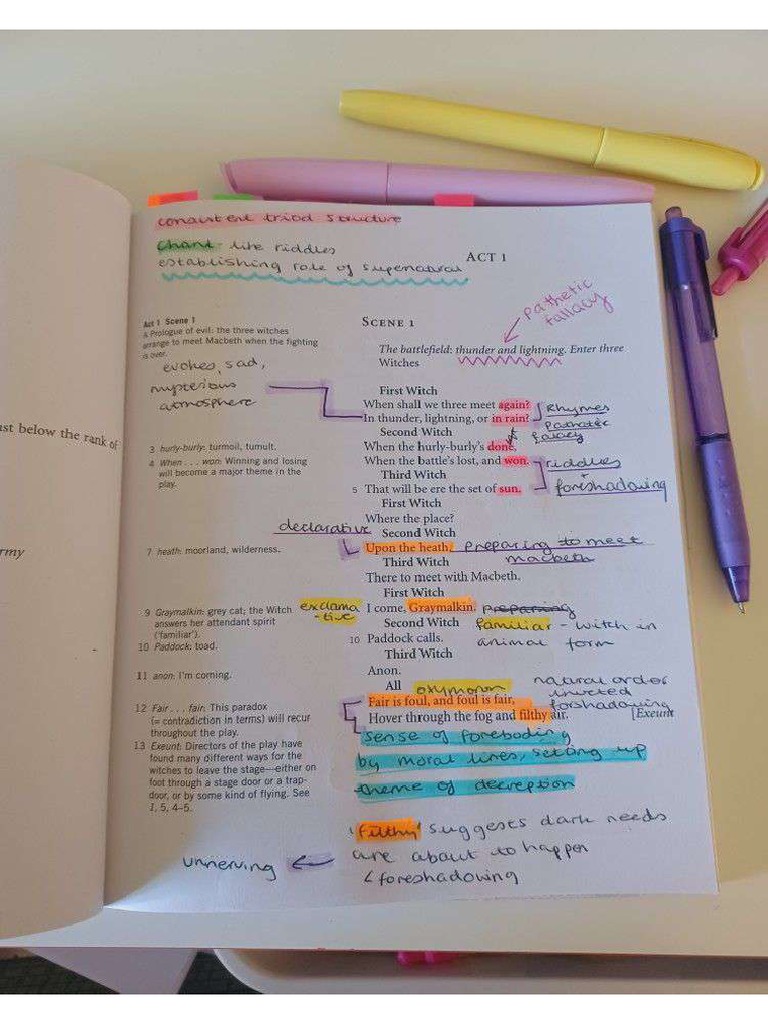 consistent triad structure
chant-like riddles
establishing role of supernatural
ACT 1
Pathetic
fallacy
Act 1 Scene 1
A Prologue of evil: the three witches
arrange to meet Macbeth when the fighting
is over.
evokes, sad,
mysterious
atmosphere
SCENE 1
The battlefield: thunder and lightning. Enter three
Witches
First Witch
When shall we three meet again?
Rhymes
In thunder, lightning, or in rain?
pathetic
fallacy
Second Witch
3 hurly-burly: turmoil, tumult.
When the hurly-burly's done,
4 When . . . won: Winning and losing
will become a major theme in the
play.
When the battle's lost, and won.
riddles
+
foreshadowing
Third Witch
5 That will be ere the set of sun.
First Witch
Where the place?
declarative
Second Witch
7 heath: moorland, wilderness.
Upon the heath.
preparing to meet
macbeth
Third Witch
There to meet with Macbeth.
First Witch
9 Graymalkin: grey cat; the Witch
answers her attendant spirit
('familiar').
exclama
-tive
I come, Graymalkin.
preparing
Second Witch
familiar - witch in
animal form
10 Paddock: toad.
10 Paddock calls.
Third Witch
11 anon: I'm coming.
Anon.
All
oxymoron
natural order
inverted
forshadowing
12 Fair . . . fair: This paradox
(= contradiction in terms) will recur
throughout the play.
Fair is foul, and foul is fair,
Hover through the fog and filthy air.
[Exeunt
13 Exeunt: Directors of the play have
found many different ways for the
witches to leave the stage—either on
foot through a stage door or a trap-
door, or by some kind of flying. See
1, 5, 4–5.
sense of foreboding
by moral lines, setting up
theme of decreption
'filthy' suggests dark needs
are about to happen
foreshadowing
unnerving
ust below the rank of
rmy